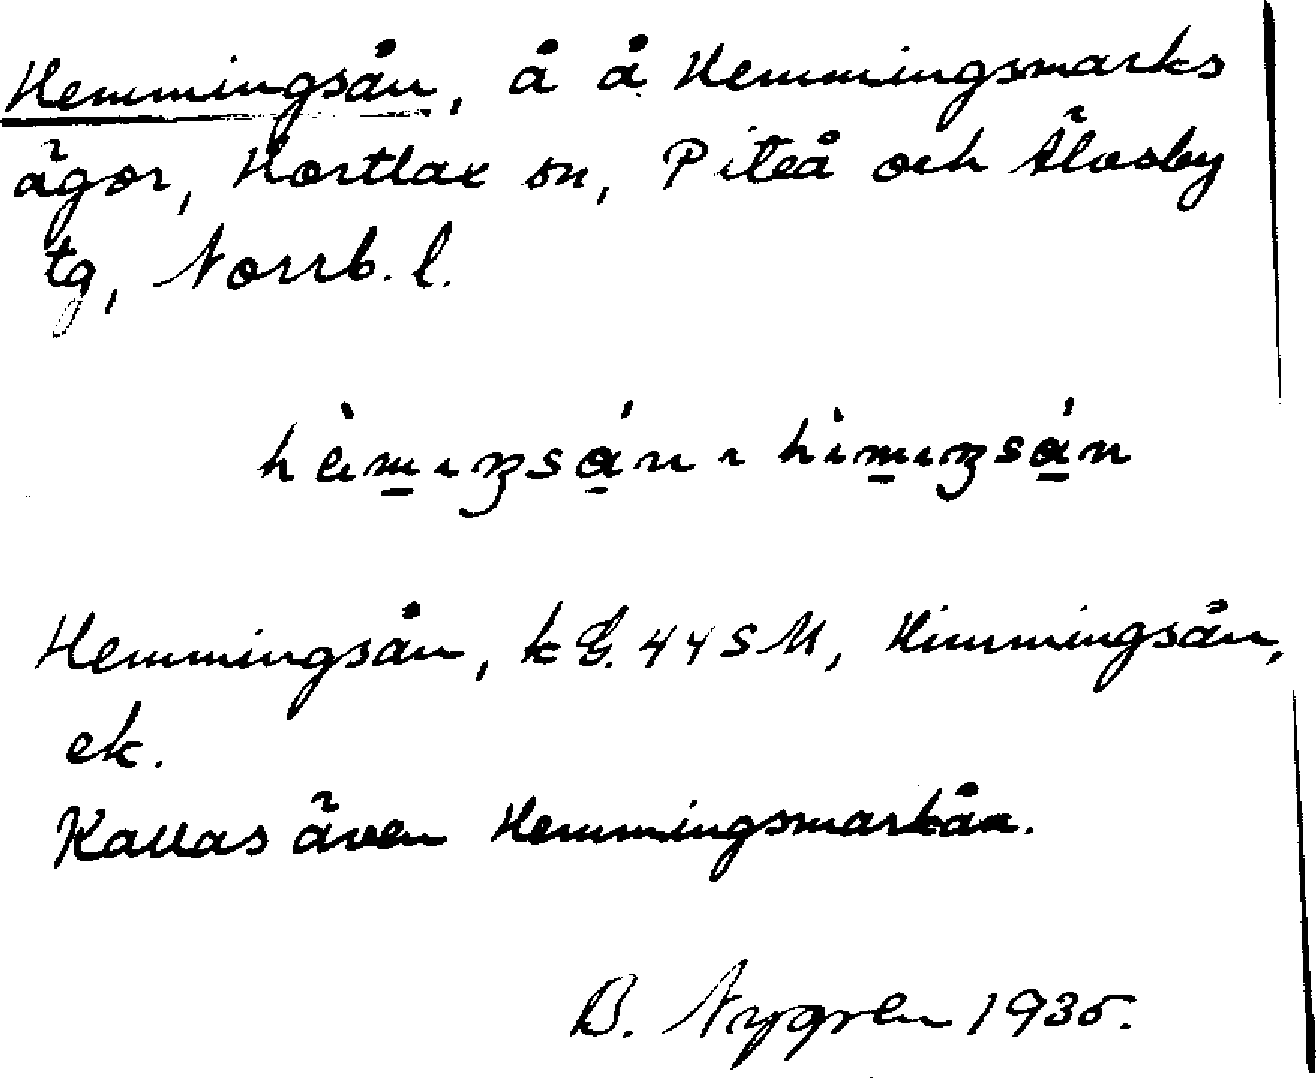 Hemmingsån, å å Hemmingsmarks
ägor, Hortlax sn, Piteå och Älvsby
tg, Norrb. l.
Hemmingsån, kG. 44 SM, Himmingsån,
ek.
Kallas även Hemmingsmarkån.
B. Nygren 1935.